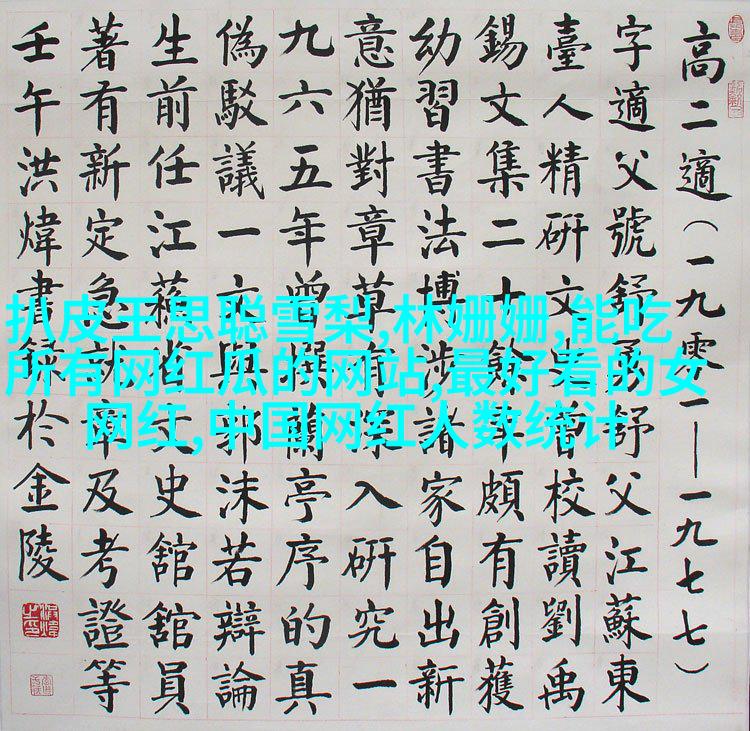 高二適(一九零一——一九七七)
字適父號舒舒父江蘇東
臺人精研文史曾校讀劉禹
錫文集二十餘年頗有創獲
幼習書法博涉諸家自出新
意猶對章草有深入研究一
九六五年曾撰蘭亭序的真
偽駁議一文與郭沫若辯論
生前任江蘇省文史舘舘員
著有新定急就章及考證等
壬午洪煒書錄於金陵
扒皮王思聪雪梨,林姗姗,能吃
所有网红瓜的网站,最好看的女
网红,中国网红人数统计